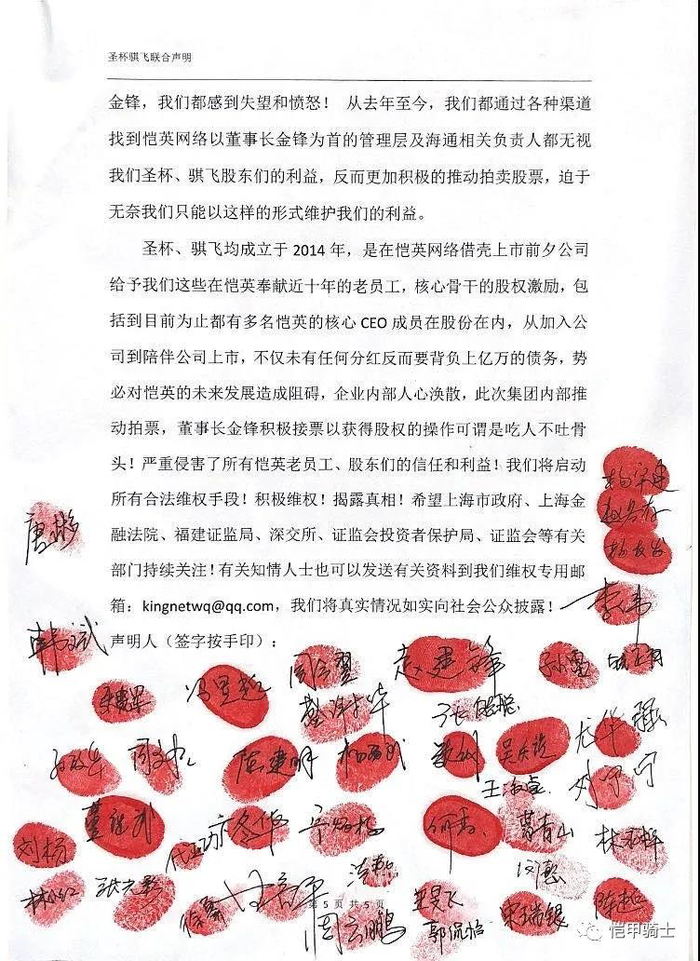 圣杯骐飞联合声明
金锋，我们都感到失望和愤怒！ 从去年至今，我们都通过各种渠道
找到恺英网络以董事长金锋为首的管理层及海通相关负责人都无视
我们圣杯、骐飞股东们的利益，反而更加积极的推动拍卖股票，迫于
无奈我们只能以这样的形式维护我们的利益。
圣杯、骐飞均成立于 2014 年，是在恺英网络借壳上市前夕公司
给予我们这些在恺英奉献近十年的老员工，核心骨干的股权激励，包
括到目前为止都有多名恺英的核心 CEO 成员在股份在内，从加入公
司到陪伴公司上市，不仅未有任何分红反而要背负上亿万的债务，势
必对恺英的未来发展造成阻碍，企业内部人心涣散，此次集团内部推
动拍票，董事长金锋积极接票以获得股权的操作可谓是吃人不吐骨
头！严重侵害了所有恺英老员工、股东们的信任和利益！我们将启动
所有合法维权手段！积极维权！揭露真相！希望上海市政府、上海金
融法院、福建证监局、深交所、证监会投资者保护局、证监会等有关
部门持续关注！有关知情人士也可以发送有关资料到我们维权专用邮
箱：kingnetwq@qq.com，我们将真实情况如实向社会公众披露！
声明人（签字按手印）：
唐彬
韩斌
冯显超
陈建明
刘杨
何喜
葛青山
王海鱼
周云鹏
王昊飞
郭侃怡
宋瑞银
陈超
第 5 页 共 5 页
恺甲骑士